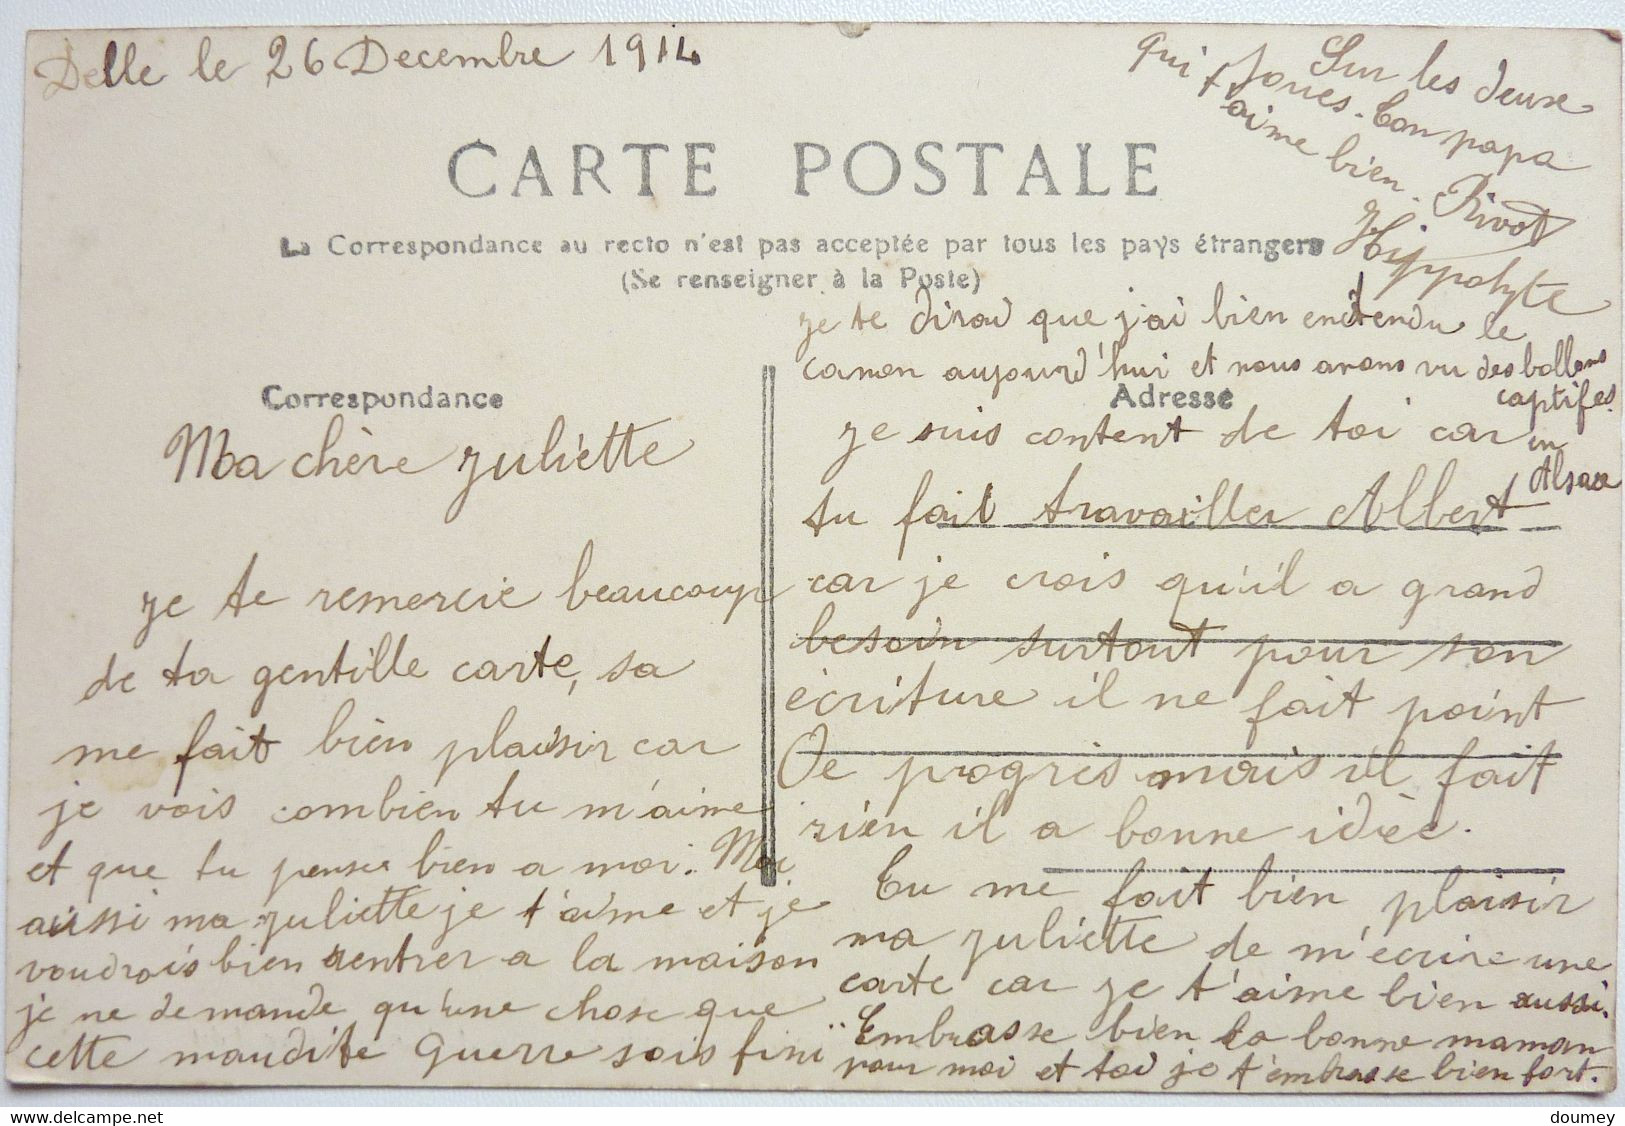 Delle le 26 Decembre 1914
CARTE POSTALE
La Correspondance au recto n'est pas acceptée par tous les pays étrangers
(Se renseigner à la Poste)
Correspondance
Ma chère Juliette
Je te remercie beaucoup
de ta gentille carte, sa
me fait bien plaisir car
je vois combien tu m'aime
et que tu penses bien a moi. Moi
aussi ma Juliette je t'aime et je
voudrois bien rentrer a la maison
je ne demande qu'une chose que
cette maudite Guerre sois fini
Je te dirai que j'ai bien enttendu le
canon aujourd'hui et nous avons vu des ballons
captifes
en
Alsace
Adresse
Je suis content de toi car
tu fait travailler Albert
car je crois qu'il a grand
besoin surtout pour son
écriture il ne fait point
De progrès mais il fait
rien il a bonne idée.
Tu me fait bien plaisir
ma Juliette de m'écrire une
carte car je t'aime bien aussi.
Embrasse bien la bonne maman
pour moi et toi je t'embrasse bien fort.
Sur les deux
joues. Ton papa
qui t'aime bien.
Rivot
Hippolyte
doumey